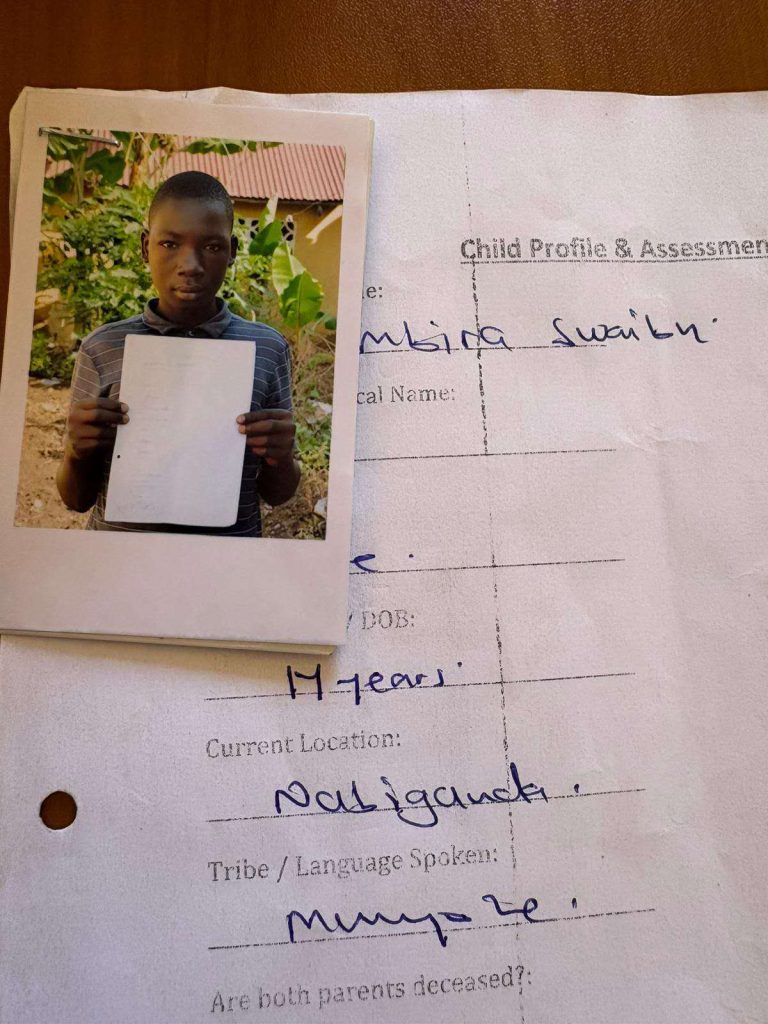 Child Profile & Assessmen
e:
mbira Swaibu.
cal Name:
e.
/ DOB:
years.
Current Location:
Nabiganda.
Tribe / Language Spoken:
Munyole.
Are both parents deceased?: